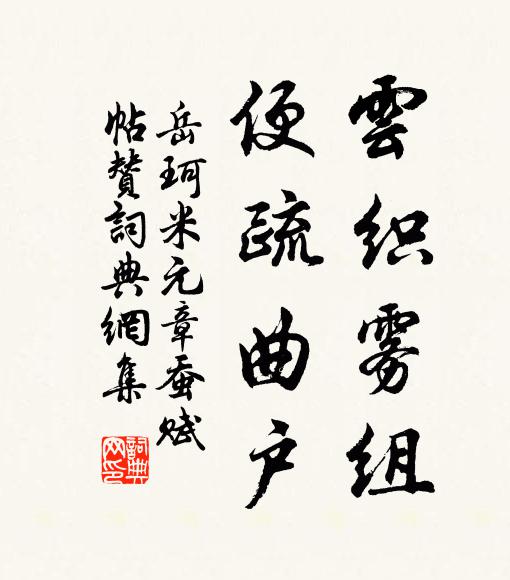 雲织雾组
便疏曲户
岳珂米元章蚕赋
帖赞詞典網集
詞典网印